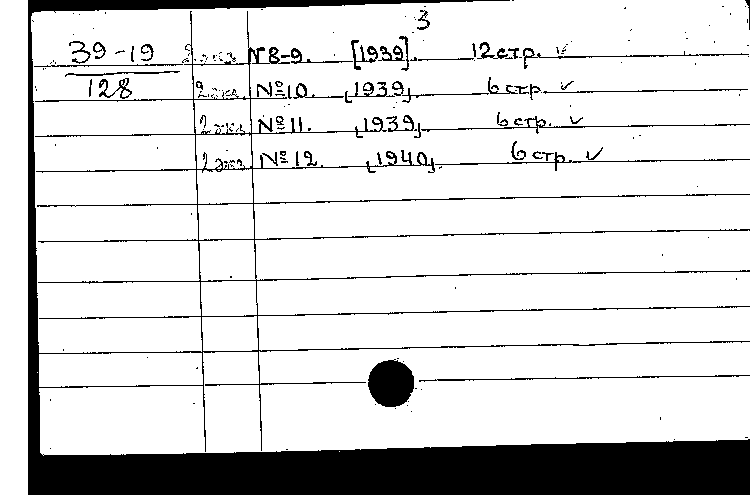 3
39-19 2 экз. №8-9. [1939]. 12 стр. ✓
128 2 экз. №10. [1939]. 6 стр. ✓
2 экз. №11. [1939]. 6 стр. ✓
2 экз. №12. [1940]. 6 стр. ✓